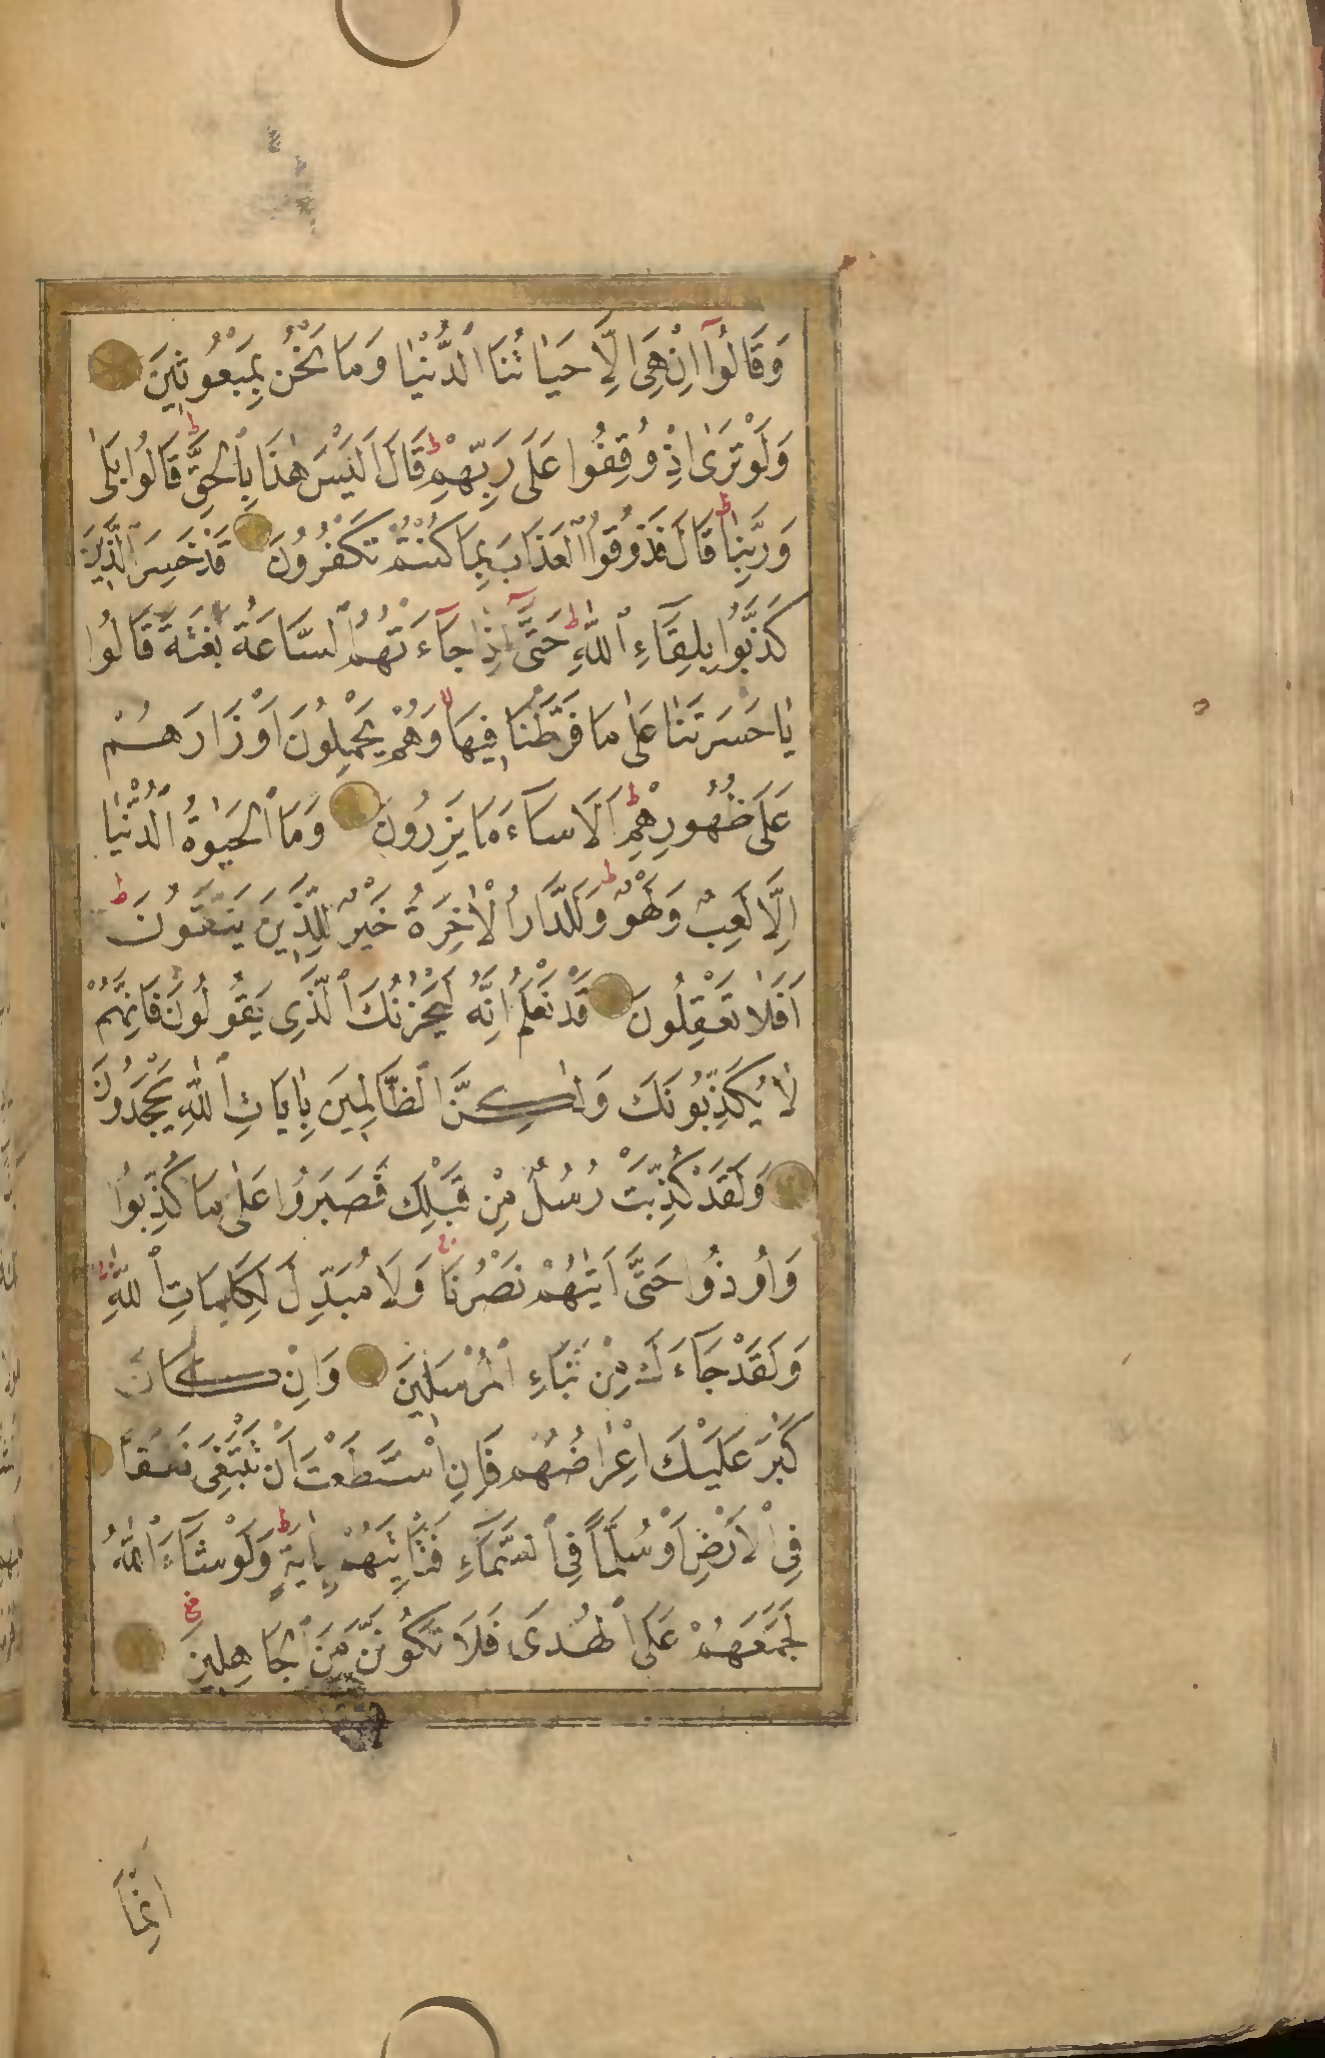 وَقَالُوٓا اِنْ هِىَ اِلَّا حَيَاتُنَا الدُّنْيَا وَمَا نَحْنُ بِمَبْعُوثِينَ
وَلَوْ تَرٰى اِذْ وُقِفُوا عَلٰى رَبِّهِمْ ط قَالَ اَلَيْسَ هٰذَا بِالْحَقِّ ط قَالُوا بَلٰى
وَرَبِّنَا ط قَالَ فَذُوقُوا الْعَذَابَ بِمَا كُنْتُمْ تَكْفُرُونَ قَدْ خَسِرَ الَّذِينَ
كَذَّبُوا بِلِقَاءِ اللّٰهِ ط حَتّٰىٓ اِذَا جَآءَتْهُمُ السَّاعَةُ بَغْتَةً قَالُوا
يَا حَسْرَتَنَا عَلٰى مَا فَرَّطْنَا فِيهَا لا وَهُمْ يَحْمِلُونَ اَوْزَارَهُمْ
عَلٰى ظُهُورِهِمْ ط اَلَا سَاءَ مَا يَزِرُونَ وَمَا الْحَيٰوةُ الدُّنْيَا
اِلَّا لَعِبٌ وَلَهْوٌ ط وَلَلدَّارُ الْاٰخِرَةُ خَيْرٌ لِلَّذِينَ يَتَّقُونَ ط
اَفَلَا تَعْقِلُونَ قَدْ نَعْلَمُ اِنَّهُ لَيَحْزُنُكَ الَّذِى يَقُولُونَ فَاِنَّهُمْ
لَا يُكَذِّبُونَكَ وَلٰكِنَّ الظَّالِمِينَ بِاٰيَاتِ اللّٰهِ يَجْحَدُونَ
وَلَقَدْ كُذِّبَتْ رُسُلٌ مِنْ قَبْلِكَ فَصَبَرُوا عَلٰى مَا كُذِّبُوا
وَاُوذُوا حَتّٰى اَتٰيهُمْ نَصْرُنَا وَلَا مُبَدِّلَ لِكَلِمَاتِ اللّٰهِ
وَلَقَدْ جَاءَكَ مِنْ نَبَاءِ الْمُرْسَلِينَ وَاِنْ كَانَ
كَبُرَ عَلَيْكَ اِعْرَاضُهُمْ فَاِنِ اسْتَطَعْتَ اَنْ تَبْتَغِىَ نَفَقًا
فِى الْاَرْضِ اَوْ سُلَّمًا فِى السَّمَاءِ فَتَاْتِيَهُمْ بِاٰيَةٍ ط وَلَوْ شَاءَ اللّٰهُ
لَجَمَعَهُمْ عَلَى الْهُدٰى فَلَا تَكُونَنَّ مِنَ الْجَاهِلِينَ
اِنَّمَا